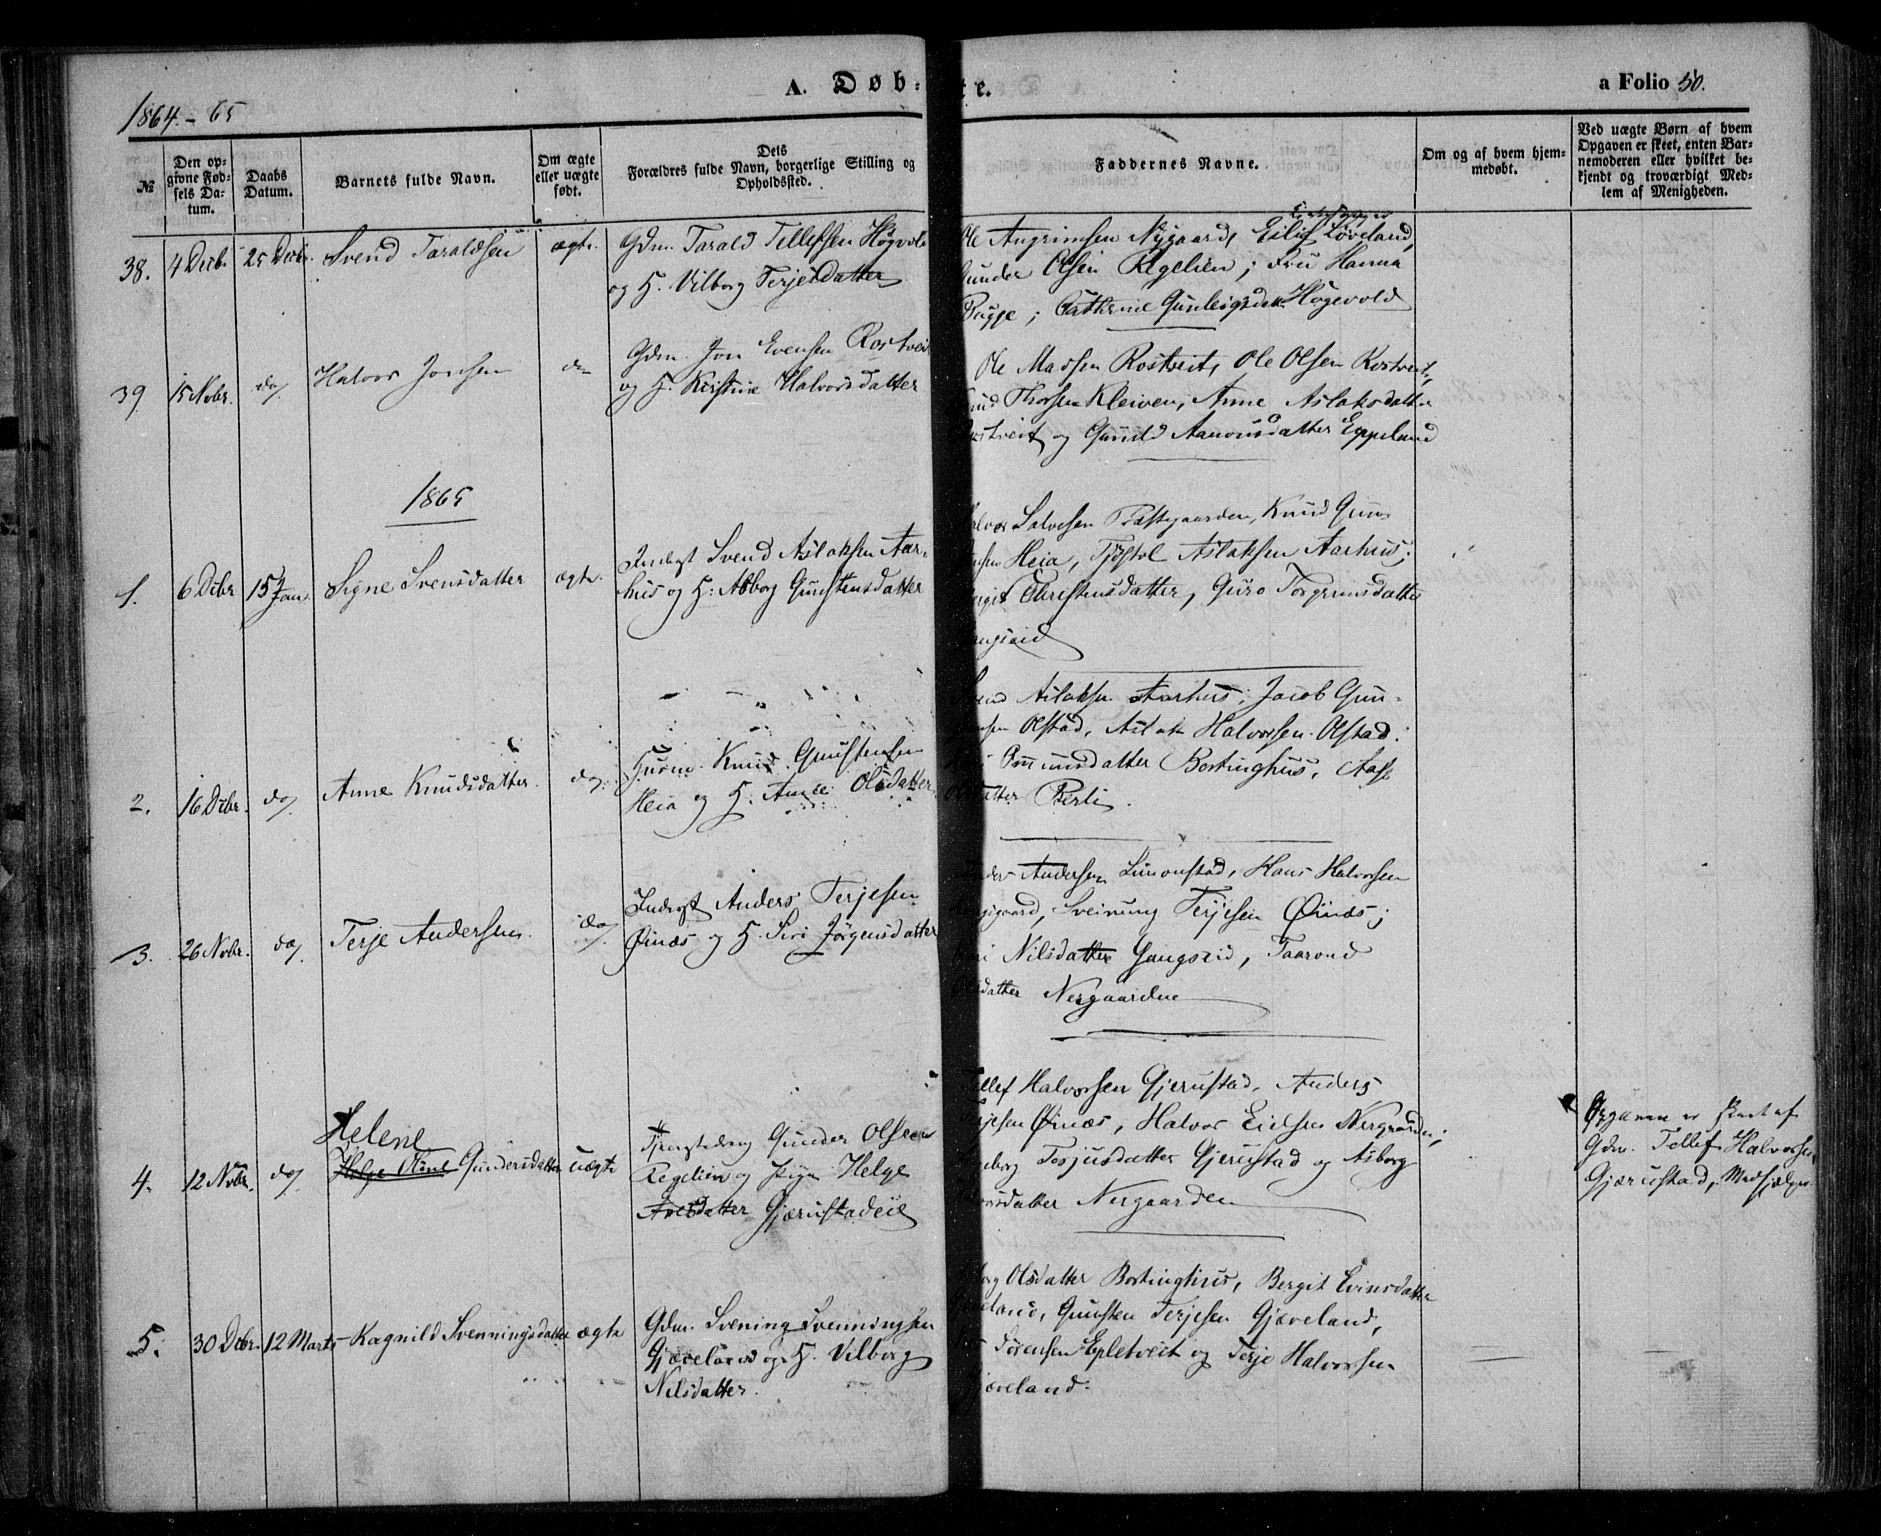 A. Døb-te.
1864-65
a Folio 50.
№
Den opgivne Fødsels Datum.
Daabs Datum.
Barnets fulde Navn.
Om ægte eller uægte født.
Dets Forældres fulde Navn, borgerlige Stilling og Opholdssted.
Faddernes Navne.
Om og af hvem hjemmedøbt.
Ved uægte Børn af hvem Opgaven er skeet, enten Barnemoderen eller hvilket bekjendt og troværdigt Medlem af Menigheden.
38. 4 Decb. 25 Decbr. Svend Taraldsen ægte. Gdm. Tarald Tellefsen Høgvol
og H. Vilborg Terjesdatter
Ole Angrimsen Nygaard, Eilif Løveland,
Gunder Olsen Regelien; Fru Hanna
Bugge; Cathrine Gunleigsdatt. Høgevold
39 15 Novbr. do/ Halvor Jonsen do Gdm. Jon Evensen Rostvei
og H. Kirstine Halvorsdatter
Ole Madsen Rostveit, Ole Olsen Rostveit,
Thorsen Kleiven, Anne Aslaksdatter
og Gunild Aanonsdatter Eppeland
1865
1. 6 Dcbr 15 Jan Signe Svensdatter ægte. Inderst Svend Aslaksen Aar-
hus og H: Asborg Gunstensdatter
Salvesen Præstgaarden, Knud Gun-
Heia, Tjøstol Aslaksen Aarhus;
Christensdatter, Guro Torgrimsdatter
2. 16 Dcbr. do/ Anne Knudsdatter do/ Husm. Knud Gunstensen
Heia og H. Anne Olsdatter
Aslaksen Aarhus; Jacob Gun-
Olstad, Aslak Halvorsen Olstad;
Omundsdatter Bostinghus,
3. 26 Novbr. do/ Terje Andersen do/ Inderst Anders Terjesen
Øinæs og H. Siri Jørgensdatter
Andersen Simonstad, Hans Halvorsen
Sveinung Terjesen Øinæs;
Nilsdatter Gangseid, Taarond
datter Nergaarden
4. 12 Novbr. do/ Helene
Helge Oline Gundersdatter uægte Gunder Olsen
Regelien og pige Helge
Avesdatter Gjerustadeie
Halvorsen Gjerustad, Anders
Øinæs, Halvor Nergaarden;
Terjusdatter Gjerustad og Asborg
datter Nergaarden
Opgaven er skeet af
Gdm. Tellef Halvorsen
Gjærustad, Medhjælper
5. 30 Dcbr. 12 Marts Ragnild Svenningsdatter ægte Gdm. Svening Svenningsen
Gjæveland og H. Vilborg
Nilsdatter.
Olsdatter Bostinghus, Bergit Evinsdatter
Gunsten Terjesen Gjæveland,
Epletveit og Terje Halvorsen